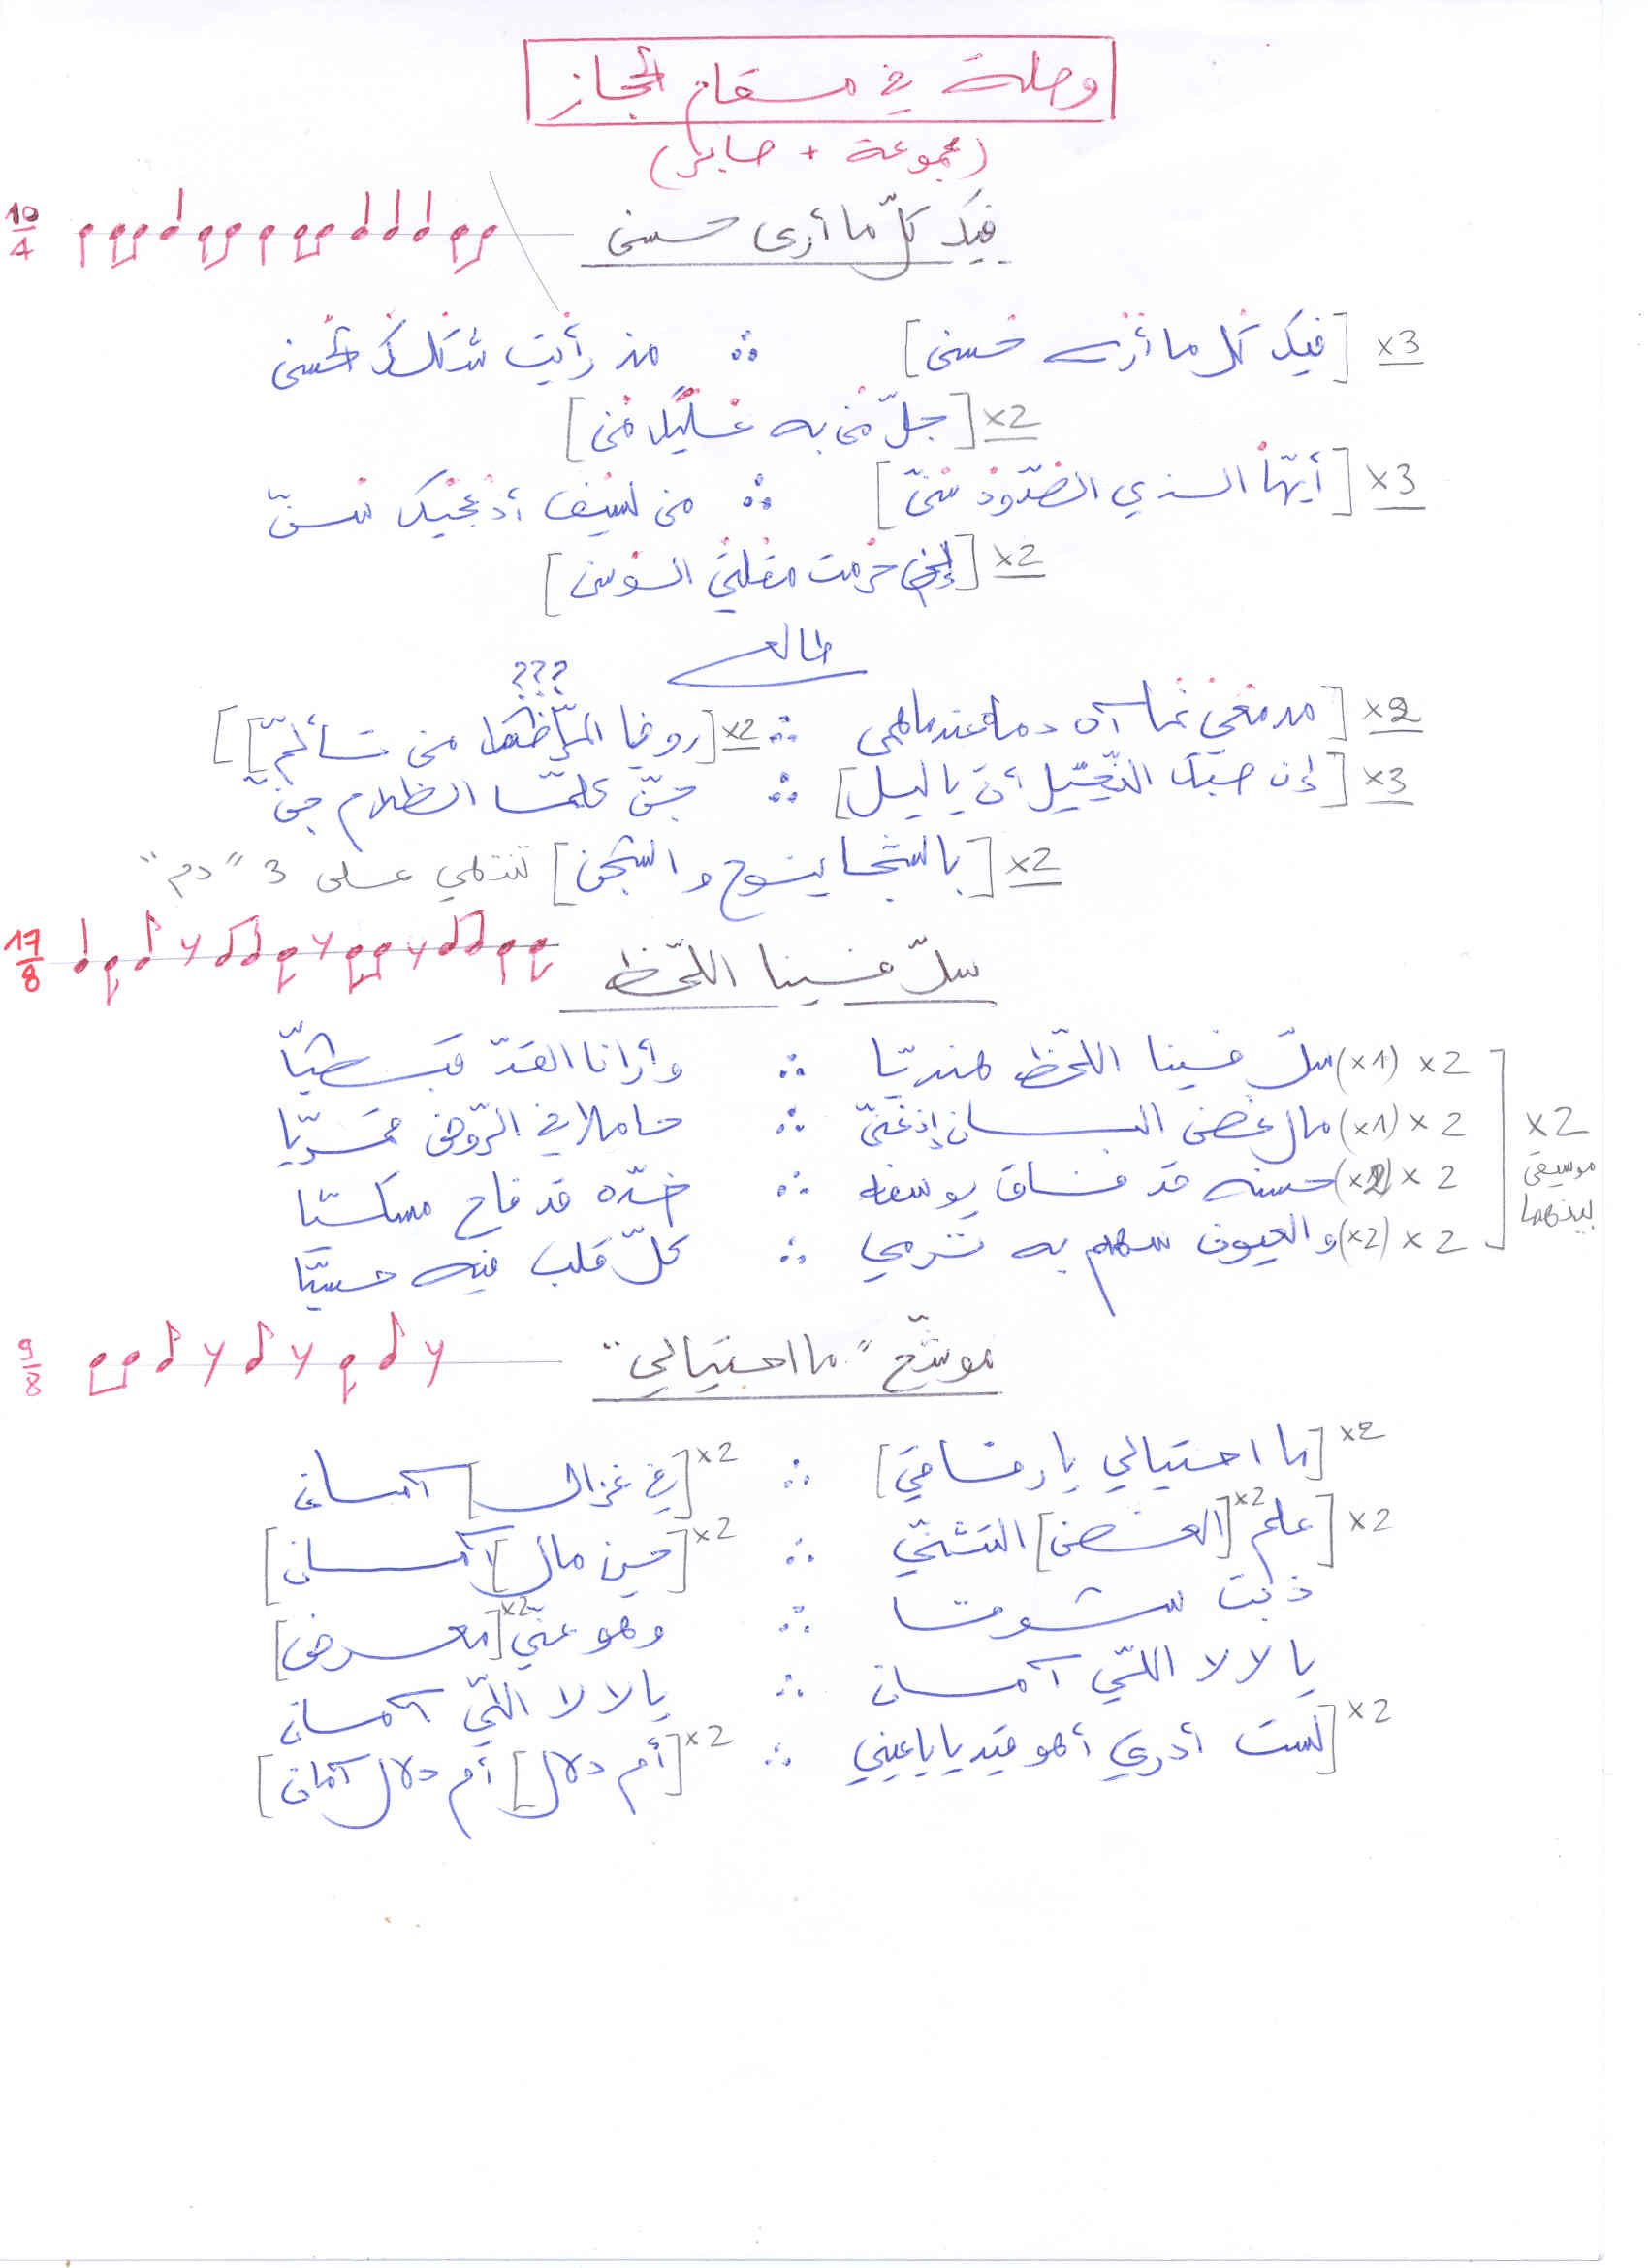 وصلة في مقام الحجاز
(مجموعة + صابر)
10/4
فيك كلّ ما أرى حسن
x3 [فيك كل ما أرى حسن] ∴ مذ رأيت شكلك الحسن
x2 [جلّ من به عليك من]
x3 [أيّها الذي الصّدود سنّ] ∴ من لسيف أدعجيك سنّ
x2 [إنني حرمت مقلتي الوسن]
طالع
???
x2 [مدمعي نما آه دما عندما همى ∴ x2 [روفيا من تألمّ]]
x3 [إن صبّك النّحيل أنّ يا ليل] ∴ جنّ كلمّا الظلام جنّ
x2 [بالشجا ينوح والشجن] تنتهي على 3 "دم"
17/8
سلّ فينا اللّحظ
x2 (x1) سلّ فينا اللّحظ هنديّا ∴ وأرانا القدّ قبطيّا
x2 (x1) مال غصن البان إذ غنّى ∴ حاملا في الرّوض قمريّا
x2 (x2) حسنه قد فاق يوسفه ∴ خدّه قد فاح مسكيّا
x2 (x2) والعيون سهم به ترمي ∴ كلّ قلب فيه حسيّا
x2
موسيقى
بينهما
9/8
موشّح "ما احتيالي"
x2 [ما احتيالي يا رفاقي] ∴ x2 [في غزال] آمان
x2 [علم x2 [الغصن] التثنّي ∴ x2 [حين مال] آمان]
ذبت شوقا ∴ وهو عنّي x2 [معرض]
يا لا لا اللّي آمان ∴ يا لا لا اللّي آمان
x2 [لست أدري أهو قيد يا يا عيني ∴ x2 [أم دلال] أم دلال آمان]